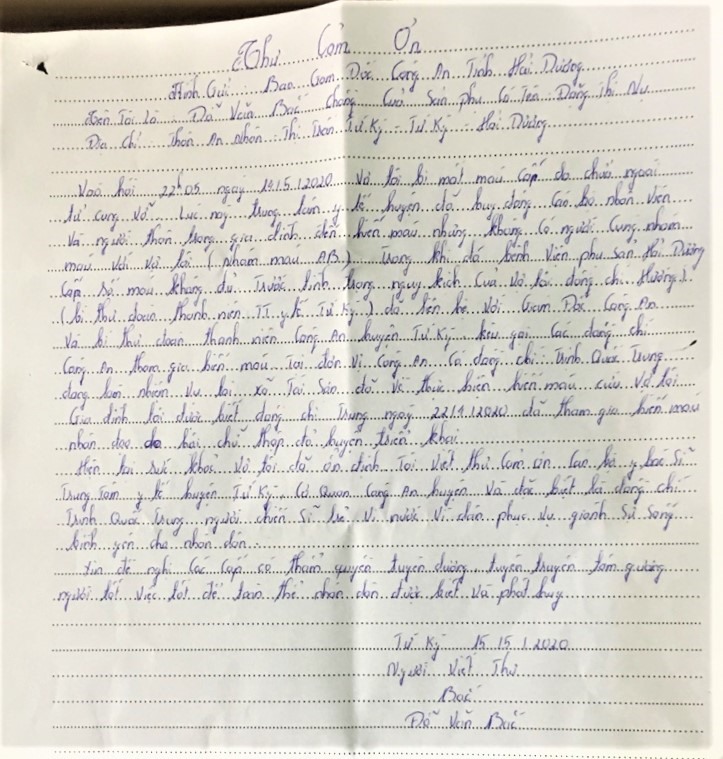 Thư Cảm Ơn
Kính Gửi: Ban Giám Đốc Công An Tỉnh Hải Dương
Tên Tôi Là Đỗ Văn Bắc Chồng Của Sản phụ Có Tên Đặng Thị Nụ
Địa chỉ Thôn An Nhân - Thị Trấn Tứ Kỳ - Tứ Kỳ - Hải Dương
Vào hồi 22h05 ngày 14/5/2020 Vợ tôi bị mất máu Cấp do chửa ngoài
tử cung vỡ. Lúc này trung tâm y tế huyện đã huy động Cán bộ nhân Viên
Và người thân trong gia đình đến hiến máu nhưng không Có người Cùng nhóm
máu Với Vợ tôi (Nhóm máu AB). Trong khi đó bệnh Viện phụ Sản Hải Dương
Cấp số máu không đủ. Trước tình trạng nguy kịch Của Vợ tôi đồng chí Hương
(bí thư đoàn thanh niên TT y tế Tứ Kỳ) đã liên hệ Với Giám Đốc Công An
Và bí thư đoàn thanh niên Công An huyện Tứ Kỳ kêu gọi Các đồng chí
Công An tham gia hiến máu. Tại đơn Vị Công An Có đồng chí Trịnh Quốc Trung
đang làm nhiệm Vụ tại xã Tái Sơn đã Về thực hiện hiến máu cứu Vợ tôi
Gia đình tôi được biết đồng chí Trung ngày 22/1/2020 đã tham gia hiến máu
nhân đạo do hội chữ thập đỏ huyện triển khai
Hiện tại Sức khoẻ Vợ tôi đã ổn định Tôi Viết thư Cảm ơn Cán bộ y bác Sĩ
Trung Tâm y tế huyện Tứ Kỳ, Cơ Quan Công An huyện Và đặc biệt là đồng chí
Trịnh Quốc Trung người chiến Sĩ Vì nước Vì dân phục Vụ giành Sự Sống
bình yên cho nhân dân.
Xin đề nghị Các Cấp có thẩm quyền tuyên dương tuyên truyền tấm gương
người tốt Việc tốt để toàn thể nhân dân được biết Và phát huy
Tứ Kỳ 15/5/2020
Người Viết Thư
Bắc
Đỗ Văn Bắc